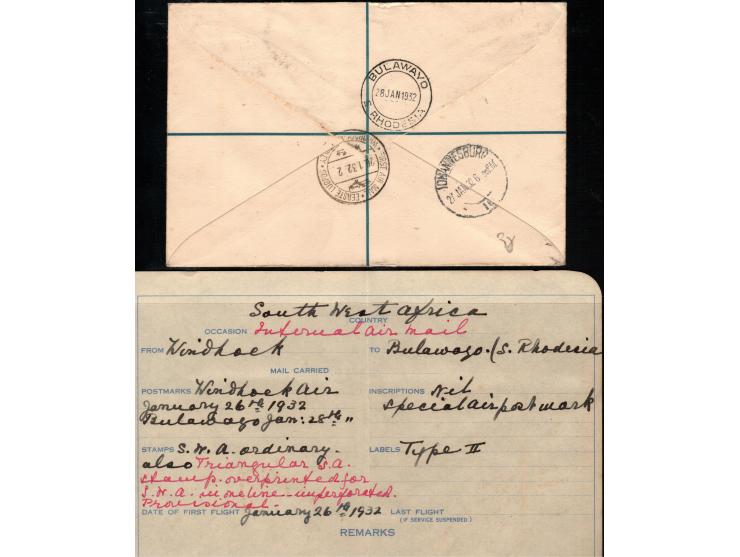 BULAWAYO
28 JAN 1932
S. RHODESIA
JOHANNESBURG
FIRST AIR MAIL
South West Africa
COUNTRY
OCCASION Internal air mail
FROM Windhoek TO Bulawayo. (S. Rhodesia
MAIL CARRIED
POSTMARKS Windhoek Air INSCRIPTIONS Nil
January 26th 1932 special airpostmark
Bulawayo Jan: 28th "
STAMPS S.W.A. ordinary. LABELS Type II
also Triangular S.A.
stamp overprinted for
S.W.A. in one line - imperforated.
Provisional.
DATE OF FIRST FLIGHT January 26th 1932 LAST FLIGHT
(IF SERVICE SUSPENDED)
REMARKS